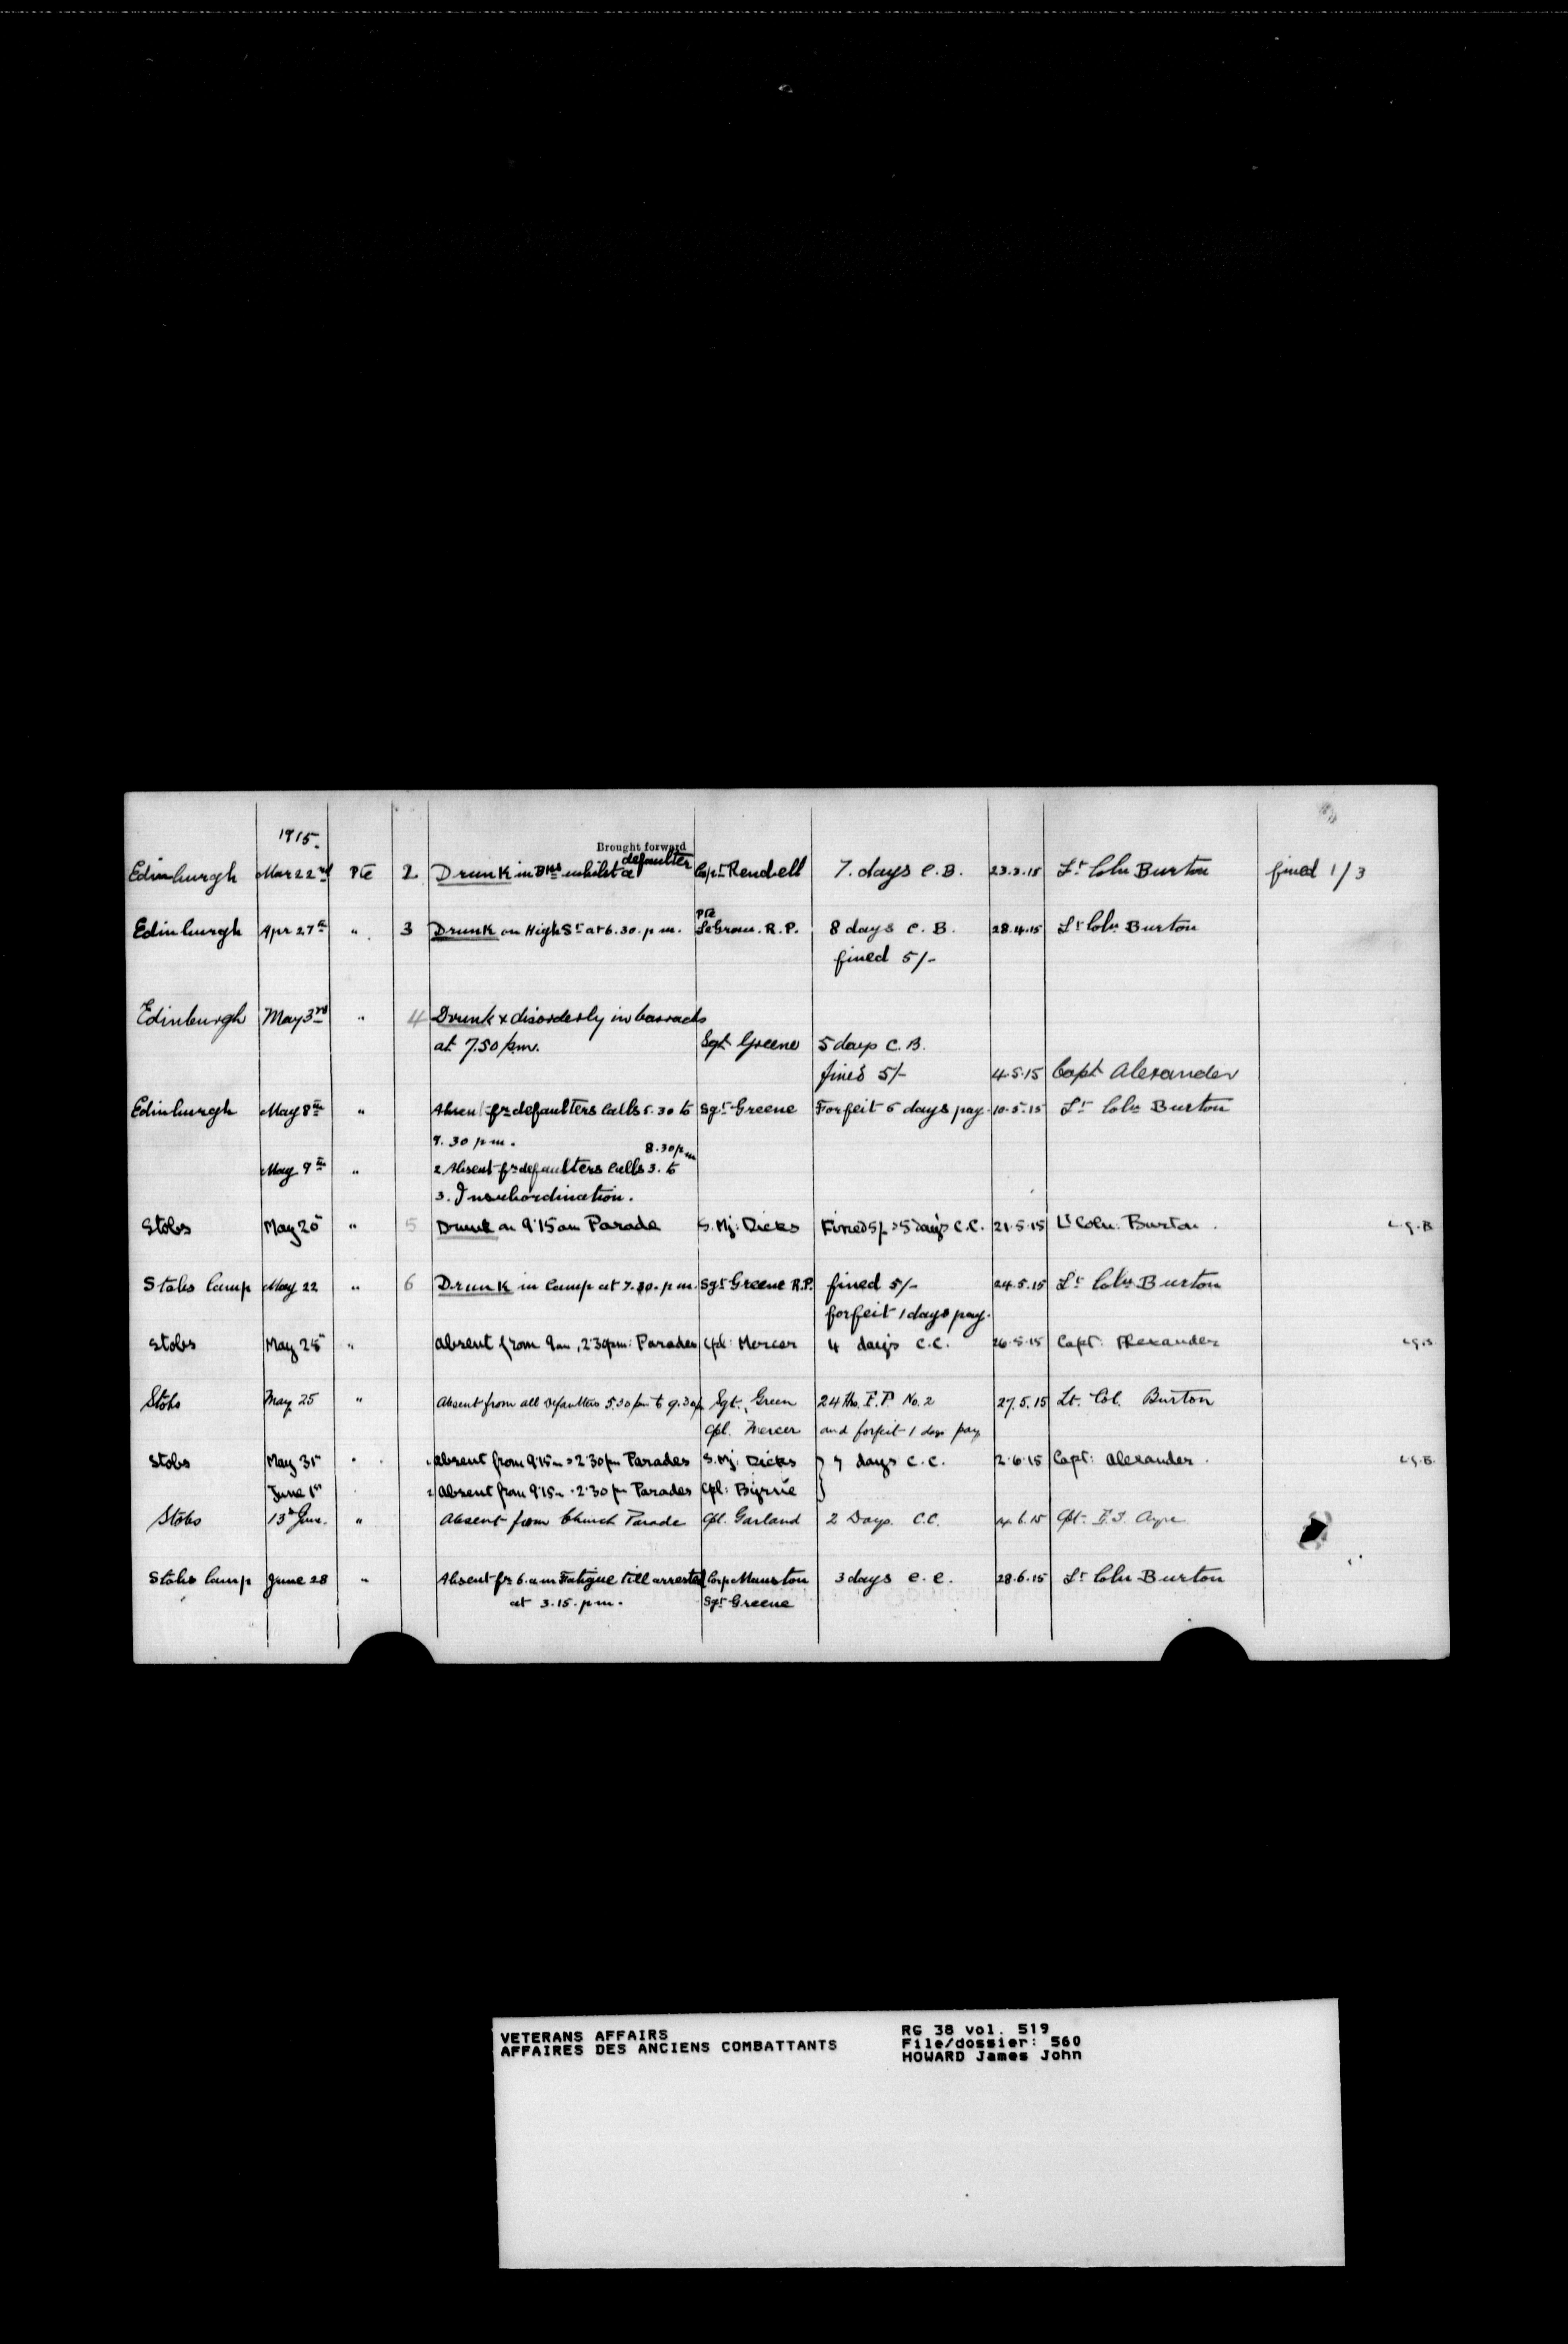 1915.
Brought forward
Edinburgh Mar 22nd Pte 2 Drunk in Bks whilst a defaulter Capt Rendell 7. days C.B. 23.3.15 Lt Coln Burton fined 1/3
Pte
Edinburgh Apr 27th " 3 Drunk on High St at 6.30. p.m. LeGrow. R.P. 8 days C.B. 28.4.15 Lt Coln Burton
fined 5/-
Edinburgh May 3rd " 4 Drunk & disorderly in barracks
at 7.50 p.m. Sgt Greene 5 days C.B.
fined 5/- 4.5.15 Capt Alexander
Edinburgh May 8th " Absent fr defaulters calls 5.30 to Sgt Greene Forfeit 5 days pay. 10.5.15 Lt Coln Burton
9.30 p.m.
8.30pm
May 9th " 2 Absent fr defaulters calls 3. to
3. Insubordination.
Stobs May 20 " 5 Drunk on 9.15 am Parade S. Mj: Dicks Fined 5/- & 5 days C.C. 21.5.15 Lt Coln: Burton. L.G.B
Stobs Camp May 22 " 6 Drunk in Camp at 7.30. p.m. Sgt Greene R.P. fined 5/- 24.5.15 Lt Coln Burton
forfeit 1 days pay.
Stobs May 25 " absent from 9am, 2.30pm: Parades Cpl: Mercer 4 days C.C. 26.5.15 Capt: Alexander L.G.B.
Stobs May 25 " Absent from all Defaulters 5.30 pm to 9.30 p Sgt. Green 24 Hrs. F.P. No. 2 27.5.15 Lt. Col. Burton
Cpl. Mercer and forfeit 1 days pay
Stobs May 31st " absent from 9.15 & 2.30 pm Parades S. Mj: Dicks } 7 days C.C. 2.6.15 Capt: Alexander. L.G.B.
June 1st 2 absent from 9.15 2.30 pm Parades Cpl: Byrne
Stobs 13th June. " Absent from Church Parade Cpl. Garland 2 Days C.C. 14.6.15 Cpt. Ayre
Stobs Camp June 28 " Absent fr 6.am Fatigue till arrested Corp Manston 3 days C.C. 28.6.15 Lt Coln Burton
at 3.15. p.m. Sgt Greene
VETERANS AFFAIRS
AFFAIRES DES ANCIENS COMBATTANTS
RG 38 vol. 519
File/dossier: 560
HOWARD James John